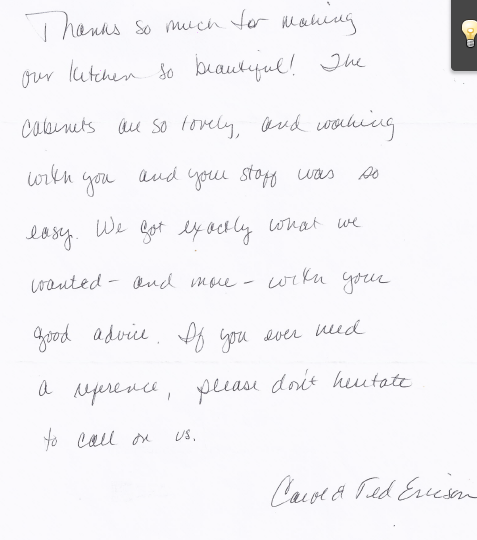 Thanks so much for making
our kitchen so beautiful! The
cabinets are so lovely, and working
with you and your staff was so
easy. We got exactly what we
wanted - and more - with your
good advice. If you ever need
a reference, please don't hesitate
to call on us.
Carol & Ted Ericson